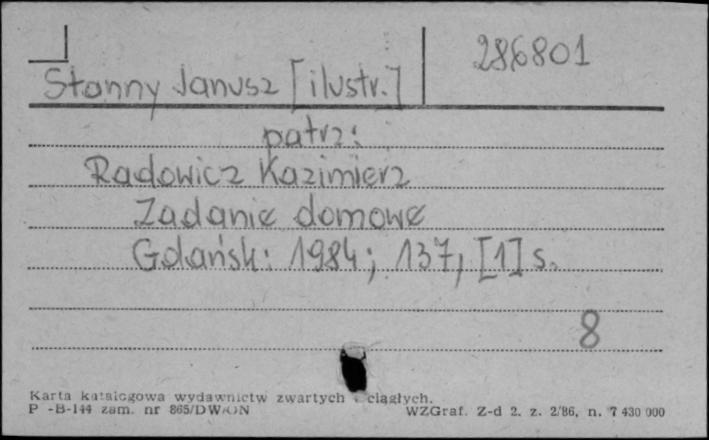 286801
Stanny Janusz [ilustr.]
patrz:
Radowicz Kazimierz
Zadanie domowe
Gdańsk: 1984; 137, [1] s.
8
Karta katalogowa wydawnictw zwartych ciągłych.
P -B-144 zam. nr 865/DW/ON WZGraf. Z-d 2. z. 2/86, n. 7 430 000